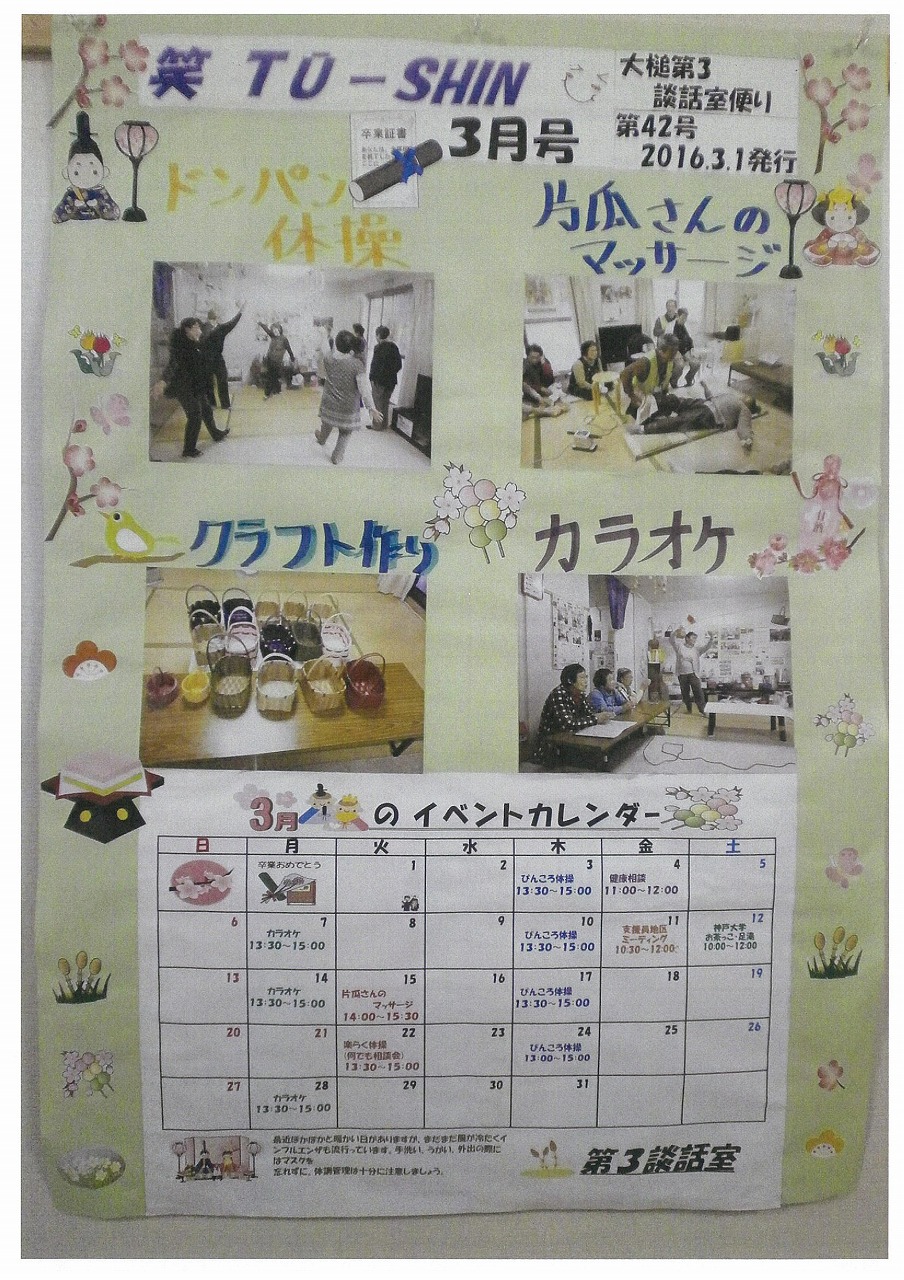 笑 TŪ－SHIN
大槌第3
談話室便り
第42号
2016.3.1発行
卒業証書
3月号
ドンパン
体操
片瓜さんの
マッサージ
クラフト作り
カラオケ
3月のイベントカレンダー
日 月 火 水 木 金 土
卒業おめでとう 1 2 3 4 5
ぴんころ体操 健康相談
13:30～15:00 11:00～12:00
6 7 8 9 10 11 12
カラオケ ぴんころ体操 支援員地区 神戸大学
ミーティング お茶っこ・足湯
13:30～15:00 13:30～15:00 10:30～12:00 10:00～12:00
13 14 15 16 17 18 19
カラオケ 片瓜さんの ぴんころ体操
マッサージ
13:30～15:00 14:00～15:30 13:30～15:00
20 21 22 23 24 25 26
楽らく体操 ぴんころ体操
(何でも相談会)
13:30～15:00 13:00～15:00
27 28 29 30 31
カラオケ
13:30～15:00
最近ぽかぽかと暖かい日がありますが、まだまだ風が冷たくイ
ンフルエンザも流行っています。手洗い、うがい、外出の際に
はマスクを
忘れずに、体調管理は十分に注意しましょう。
第3談話室